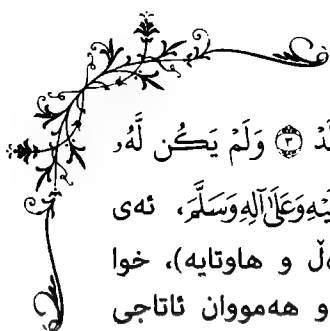 ـدْ ٣ وَلَمْ يَكُن لَّهُۥ
ـيْهِ وَعَلَىٰ آلِهِ وَسَلَّمَ، ئەی
ـەڵ و هاوتایە)، خوا
و هەمووان ئاتاجی